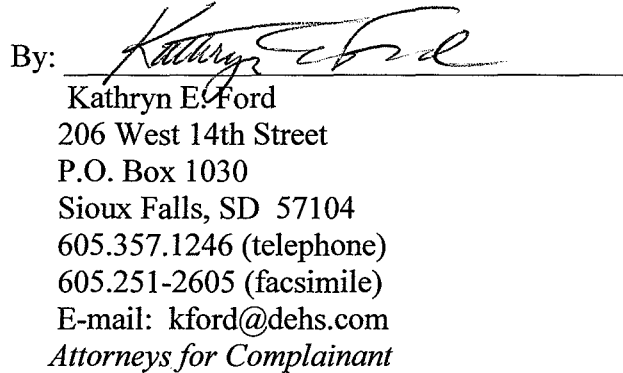 By: Kathryn E Ford
Kathryn E. Ford
206 West 14th Street
P.O. Box 1030
Sioux Falls, SD 57104
605.357.1246 (telephone)
605.251-2605 (facsimile)
E-mail: kford@dehs.com
Attorneys for Complainant